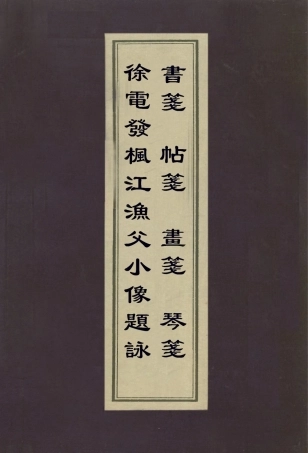 書箋 帖箋 畫箋 琴箋
徐電發楓江漁父小像題詠